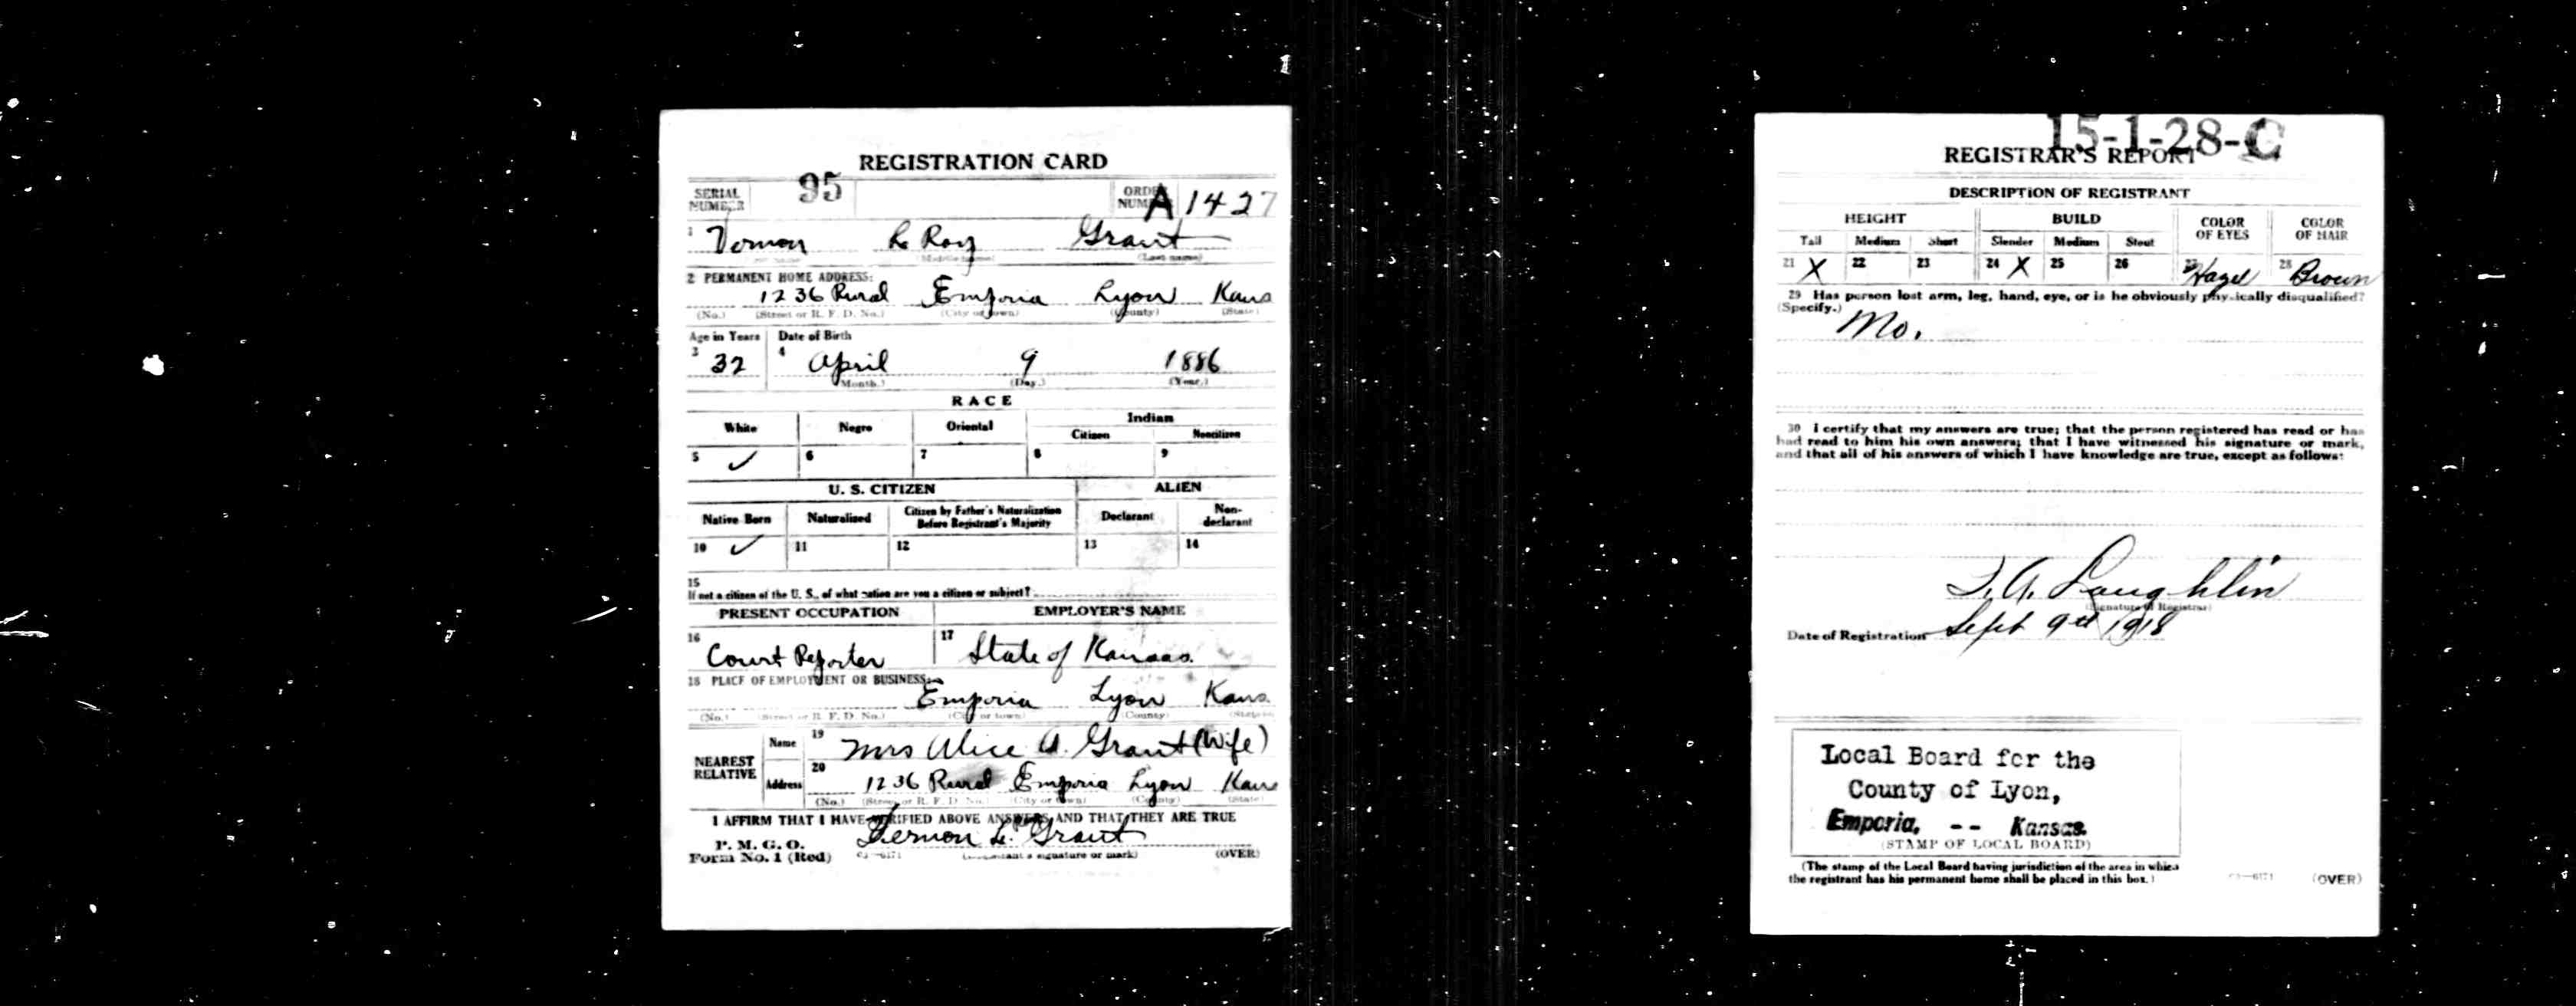 REGISTRATION CARD
SERIAL NUMBER 95 ORDER NUMBER A 1427
1 Vernon Le Roy Grant
(Middle name) (Last name)
2 PERMANENT HOME ADDRESS:
1236 Rural Emporia Lyon Kans
(No.) (Street or R. F. D. No.) (City or town) (County) (State)
Age in Years Date of Birth
3 32 4 April 9 1886
(Month.) (Day.) (Year.)
RACE
White Negro Oriental Indian
Citizen Noncitizen
5 ✓ 6 7 8 9
U. S. CITIZEN ALIEN
Native Born Naturalized Citizen by Father's Naturalization Before Registrant's Majority Declarant Non-declarant
10 ✓ 11 12 13 14
15
If not a citizen of the U. S., of what nation are you a citizen or subject?
PRESENT OCCUPATION EMPLOYER'S NAME
16 Court Reporter 17 State of Kansas.
18 PLACE OF EMPLOYMENT OR BUSINESS:
Emporia Lyon Kans.
(No.) (Street or R. F. D. No.) (City or town) (County) (State)
NEAREST RELATIVE
Name 19 Mrs Alice A. Grant (Wife)
Address 20 1236 Rural Emporia Lyon Kans
(No.) (Street or R. F. D. No.) (City or town) (County) (State)
I AFFIRM THAT I HAVE VERIFIED ABOVE ANSWERS AND THAT THEY ARE TRUE
P. M. G. O.
Form No. 1 (Red) 03—6171 Vernon L. Grant
(Registrant's signature or mark) (OVER)
15-1-28-C
REGISTRAR'S REPORT
DESCRIPTION OF REGISTRANT
HEIGHT BUILD COLOR OF EYES COLOR OF HAIR
Tall Medium Short Slender Medium Stout
21 X 22 23 24 X 25 26 27 Hazel 28 Brown
29 Has person lost arm, leg, hand, eye, or is he obviously physically disqualified?
(Specify.)
No.
30 I certify that my answers are true; that the person registered has read or has
had read to him his own answers; that I have witnessed his signature or mark,
and that all of his answers of which I have knowledge are true, except as follows:
Laughlin
(Signature of Registrar)
Date of Registration Sept 9th 1918
Local Board for the
County of Lyon,
Emporia, -- Kansas.
(STAMP OF LOCAL BOARD)
(The stamp of the Local Board having jurisdiction of the area in which
the registrant has his permanent home shall be placed in this box.)
03—6171 (OVER)